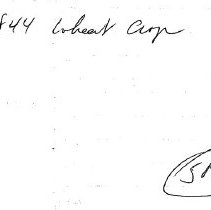 44 Wheat Crop